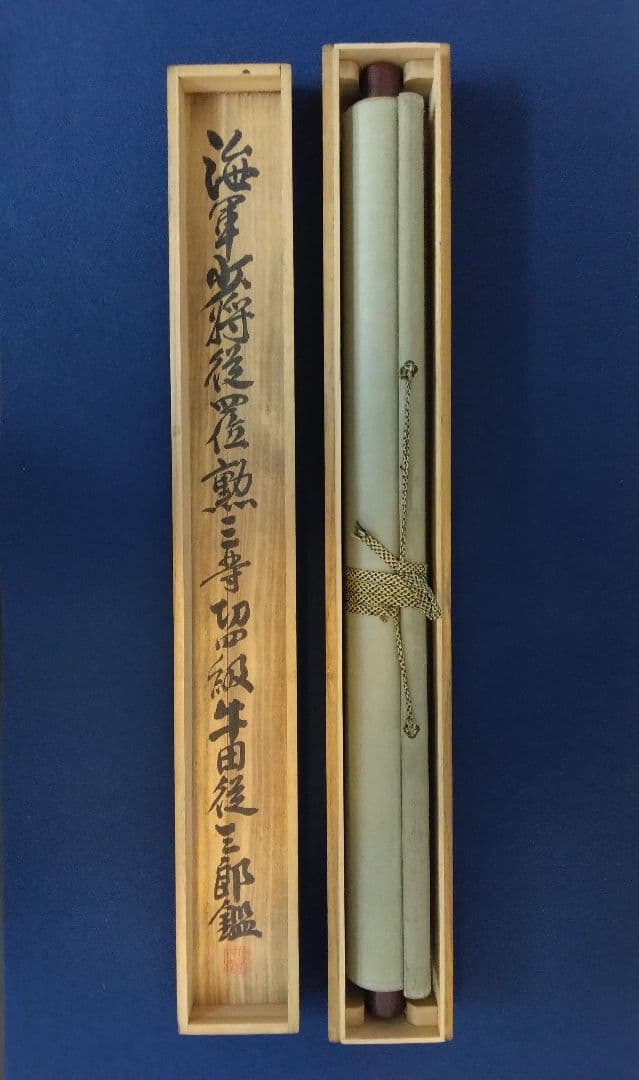 海軍少将従四位勲三等功四級牛田従三郎鑑